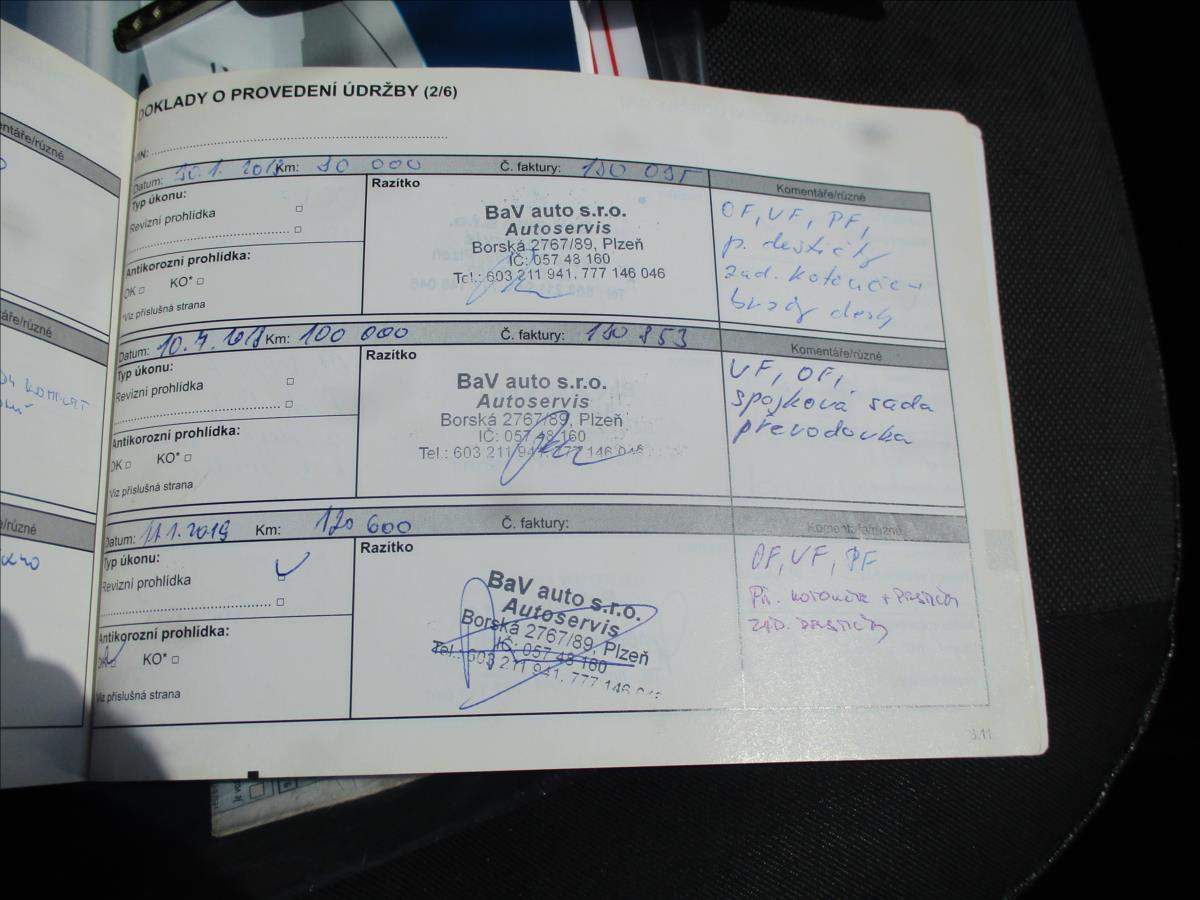 DOKLADY O PROVEDENÍ ÚDRŽBY (2/6)
VIN:
Datum: 30.1. 2018 Km: 90 000 Č. faktury: 180 095 Komentáře/různé
Typ úkonu:
Revizní prohlídka
Antikorozní prohlídka:
OK KO*
*Viz příslušná strana
Razítko
BaV auto s.r.o.
Autoservis
Borská 2767/89, Plzeň
IČ: 057 48 160
Tel.: 603 211 941, 777 146 046
OF, VF, PF,
p. destičky
zad. kotouče +
brzdy desty
Datum: 10.7.2018 Km: 100 000 Č. faktury: 180 853 Komentáře/různé
Typ úkonu:
Revizní prohlídka
Antikorozní prohlídka:
OK KO*
Viz příslušná strana
Razítko
BaV auto s.r.o.
Autoservis
Borská 2767/89, Plzeň
IČ: 057 48 160
Tel.: 603 211 941, 777 146 046
VF, OF,
spojková sada
převodovka
Datum: 11.1.2019 Km: 120 600 Č. faktury: Komentáře/různé
Typ úkonu:
Revizní prohlídka
Antikorozní prohlídka:
OK KO*
Viz příslušná strana
Razítko
BaV auto s.r.o.
Autoservis
Borská 2767/89, Plzeň
IČ: 057 48 160
Tel.: 603 211 941, 777 146 046
OF, VF, PF
PŘ. KOTOUČE + DESTIČKY
ZAD. DESTIČKY